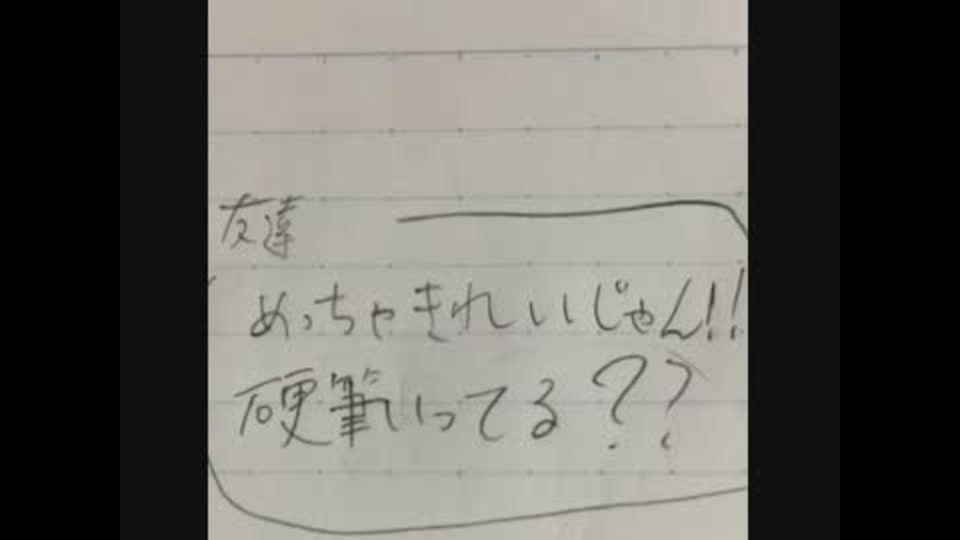 友達
めっちゃきれいじゃん!!
硬筆いってる??